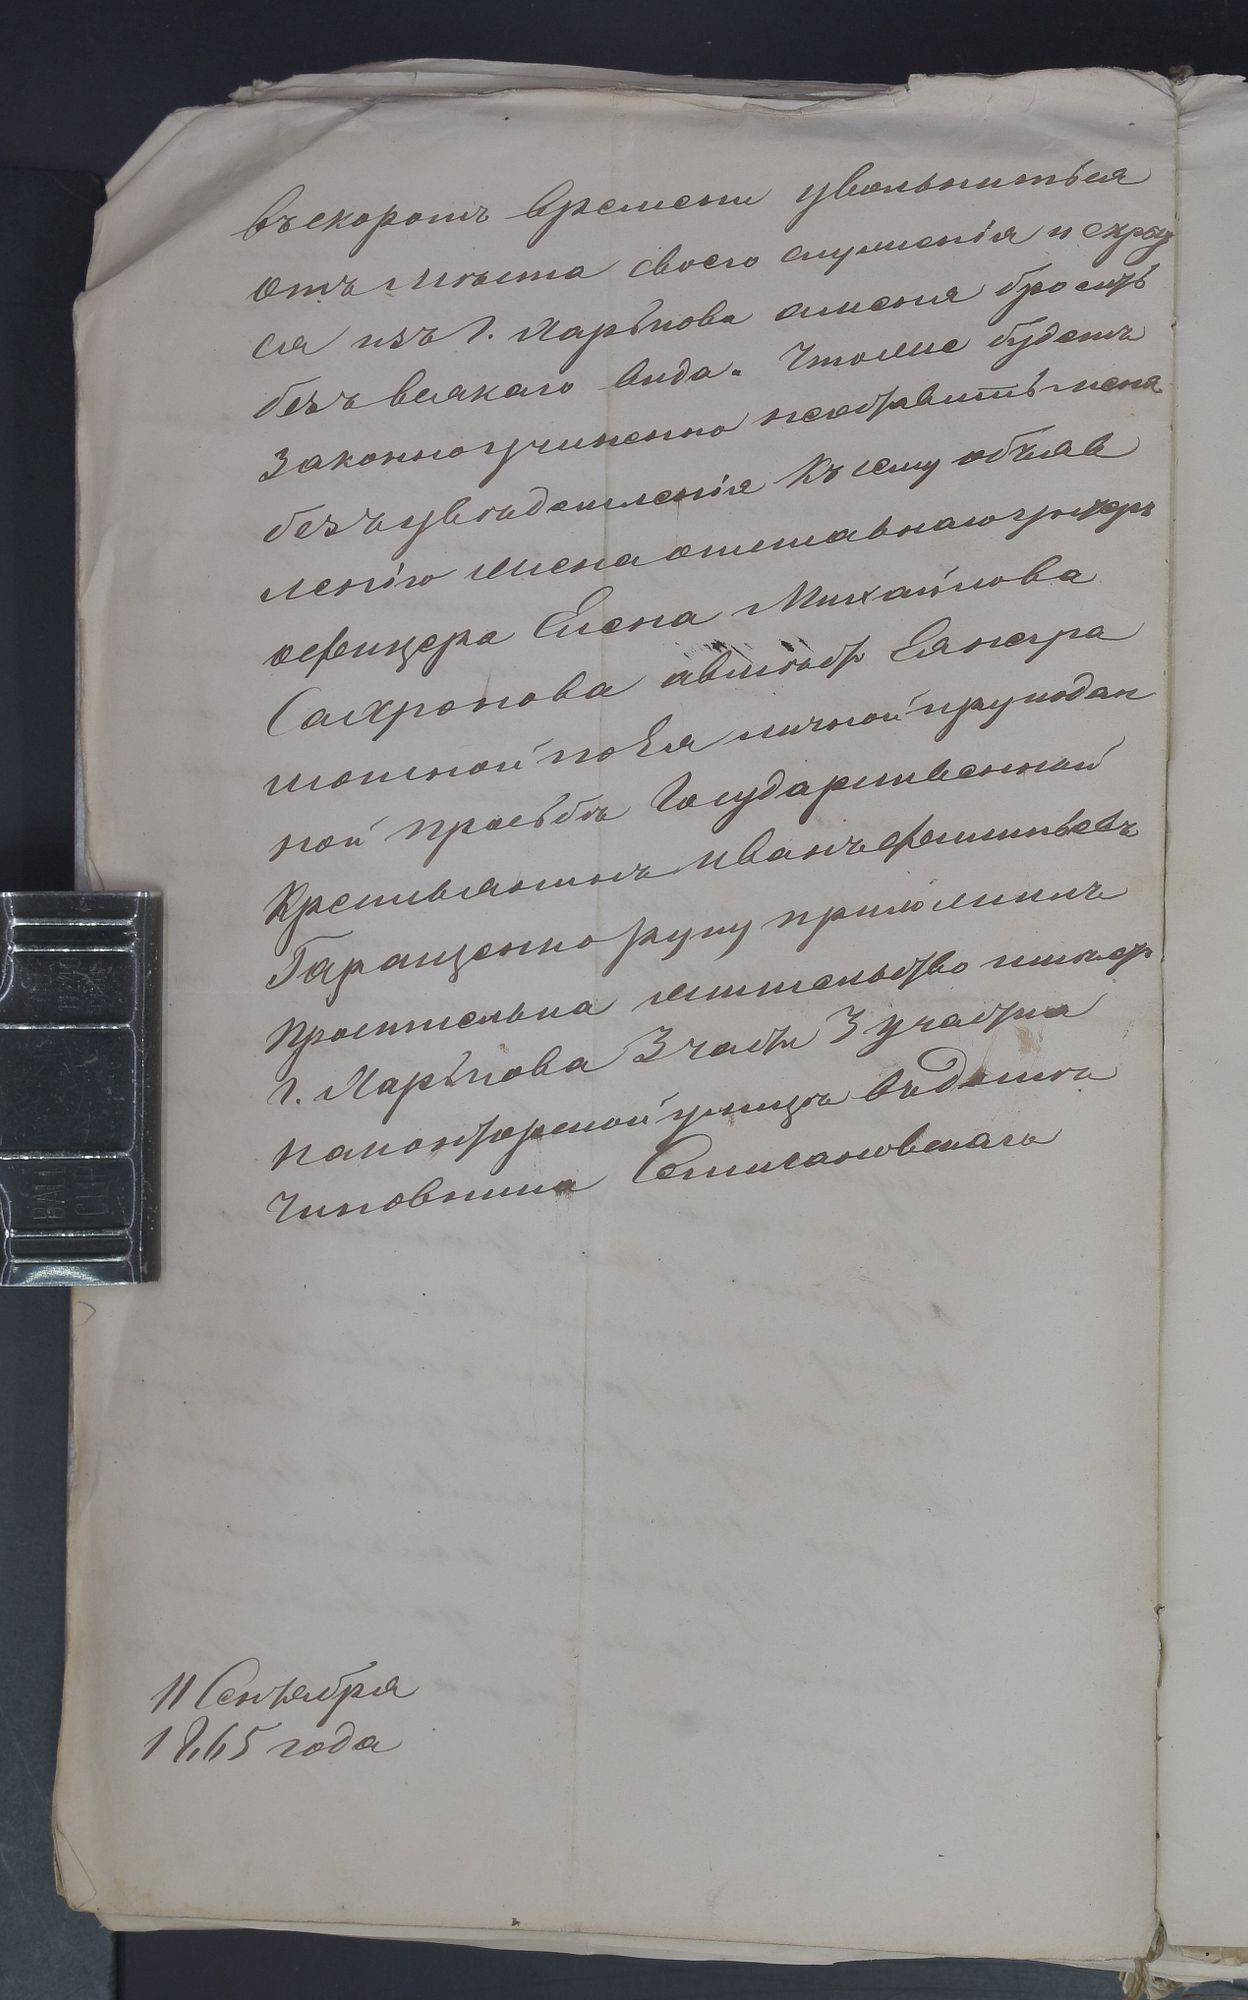 въскоромъ времени увольниться
отъ мѣста своего служенія и скры
ся изъ г. Харькова аменя бросить
безъ всякаго вида. Чтоже будетъ
Законноучиненно неоставить меня
безъ увѣдомленія Къ сему объяв
ленію жена отставнаго унтеръ
офицера Елена Михайлова
Сахронова авместо Ея негра
мотной по Ея личной прузодан
ной просьбѣ Государственной
Крестьянинъ Иванъ Филипьевъ
Гаращенко руку приложилъ
Просительна жительство имеетъ
г. Харькова 3 части 3 участка
наконторской улицѣ въ домѣ
чиновника
11 Сентября
1865 года